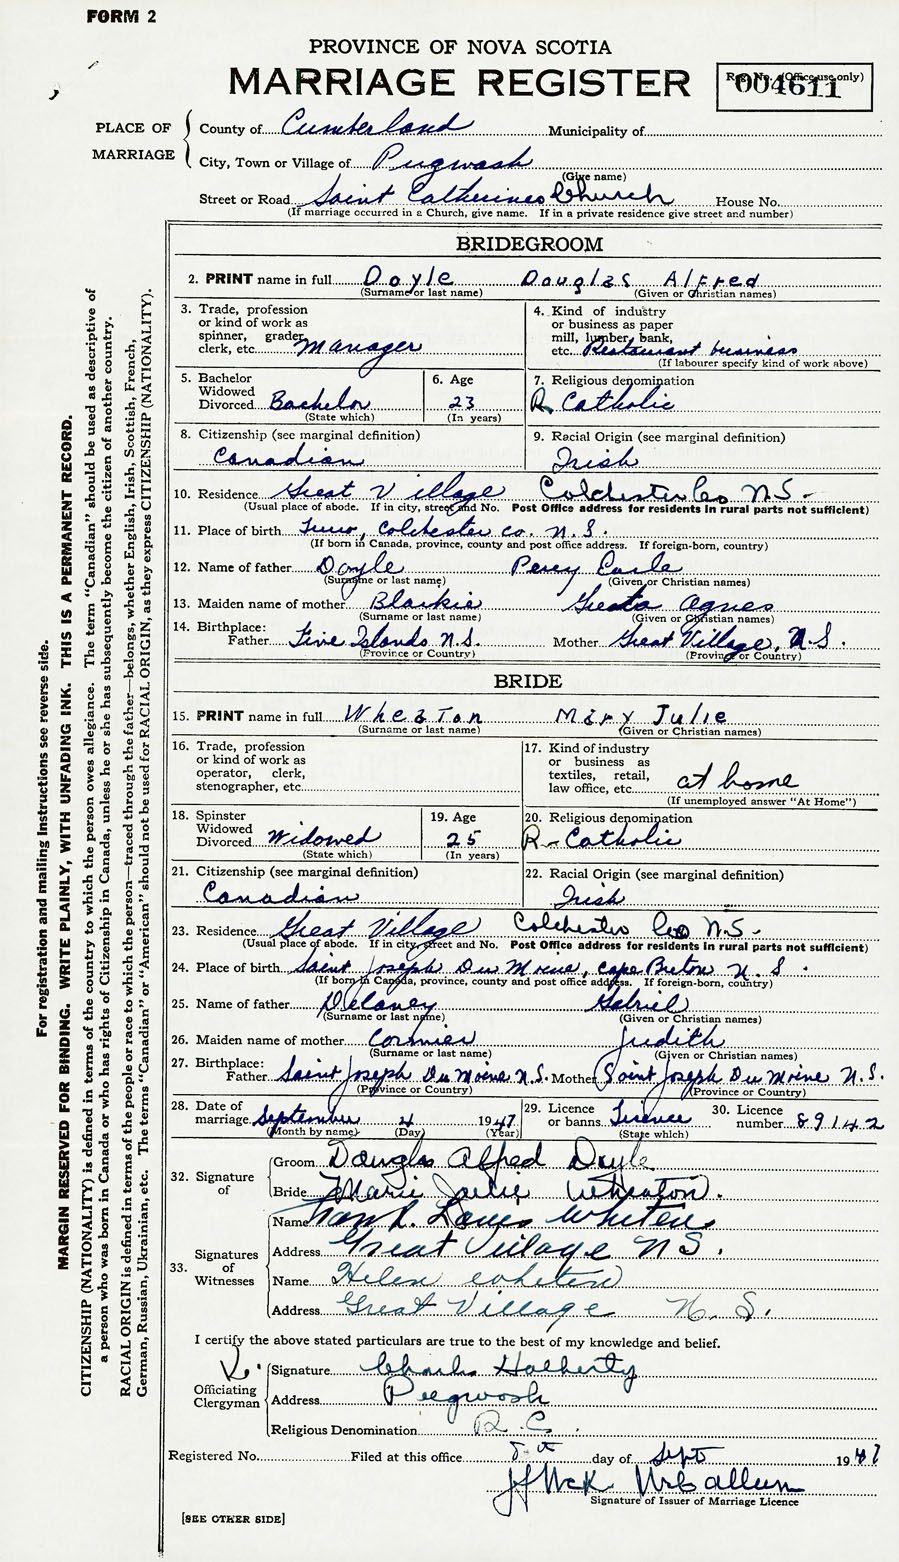 FORM 2
PROVINCE OF NOVA SCOTIA
MARRIAGE REGISTER
Reg. No. (Office use only)
004611
PLACE OF MARRIAGE
County of Cumberland Municipality of
City, Town or Village of Pugwash
(Give name)
Street or Road Saint Catherines Church House No.
(If marriage occurred in a Church, give name. If in a private residence give street and number)
BRIDEGROOM
2. PRINT name in full Doyle Douglas Alfred
(Surname or last name) (Given or Christian names)
3. Trade, profession or kind of work as spinner, grader, clerk, etc. Manager
4. Kind of industry or business as paper mill, lumber, bank, etc. Restaurant business
(If labourer specify kind of work above)
5. Bachelor Widowed Divorced Bachelor
(State which)
6. Age 23
(In years)
7. Religious denomination
R Catholic
8. Citizenship (see marginal definition)
Canadian
9. Racial Origin (see marginal definition)
Irish
10. Residence Great Village Colchester Co N.S.
(Usual place of abode. If in city, street and No. Post Office address for residents in rural parts not sufficient)
11. Place of birth Truro, Colchester co. N.S.
(If born in Canada, province, county and post office address. If foreign-born, country)
12. Name of father Doyle Percy Earle
(Surname or last name) (Given or Christian names)
13. Maiden name of mother Blaikie Greta Agnes
(Surname or last name) (Given or Christian names)
14. Birthplace:
Father Five Islands N.S. Mother Great Village, N.S.
(Province or Country) (Province or Country)
BRIDE
15. PRINT name in full Wheaton Mary Julie
(Surname or last name) (Given or Christian names)
16. Trade, profession or kind of work as operator, clerk, stenographer, etc.
17. Kind of industry or business as textiles, retail, law office, etc. at home
(If unemployed answer "At Home")
18. Spinster Widowed Divorced Widowed
(State which)
19. Age 25
(In years)
20. Religious denomination
R-Catholic
21. Citizenship (see marginal definition)
Canadian
22. Racial Origin (see marginal definition)
Irish
23. Residence Great Village Colchester Co N.S.
(Usual place of abode. If in city, street and No. Post Office address for residents in rural parts not sufficient)
24. Place of birth Saint Joseph Du Moine, Cape Breton N.S.
(If born in Canada, province, county and post office address. If foreign-born, country)
25. Name of father Delaney Gabriel
(Surname or last name) (Given or Christian names)
26. Maiden name of mother Cormier Judith
(Surname or last name) (Given or Christian names)
27. Birthplace:
Father Saint Joseph Du Moine N.S. Mother Saint Joseph Du Moine N.S.
(Province or Country) (Province or Country)
28. Date of marriage September 4 1947
(Month by name) (Day) (Year)
29. Licence or banns Licence
(State which)
30. Licence number 89142
32. Signature of
Groom Douglas Alfred Doyle
Bride Marie Julie Wheaton.
33. Signatures of Witnesses
Name Louis
Address Great Village N.S.
Name Helen
Address Great Village N.S.
I certify the above stated particulars are true to the best of my knowledge and belief.
Officiating Clergyman
Signature Charles
Address Pugwash
Religious Denomination R.C.
Registered No. Filed at this office 8th day of Sept 1947
McCallum
Signature of Issuer of Marriage Licence
[SEE OTHER SIDE]
For registration and mailing instructions see reverse side.
MARGIN RESERVED FOR BINDING. WRITE PLAINLY, WITH UNFADING INK. THIS IS A PERMANENT RECORD.
CITIZENSHIP (NATIONALITY) is defined in terms of the country to which the person owes allegiance. The term "Canadian" should be used as descriptive of
a person who was born in Canada or who has rights of Citizenship in Canada, unless he or she has subsequently become the citizen of another country.
RACIAL ORIGIN is defined in terms of the people or race to which the person—traced through the father—belongs, whether English, Irish, Scottish, French,
German, Russian, Ukrainian, etc. The terms "Canadian" or "American" should not be used for RACIAL ORIGIN, as they express CITIZENSHIP (NATIONALITY).